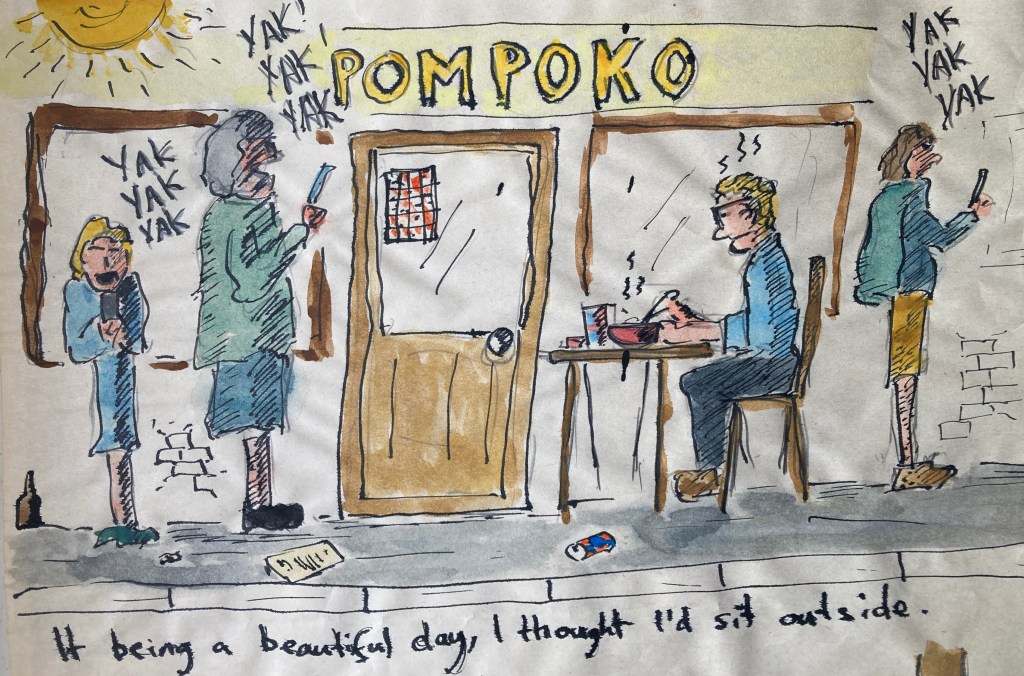 YAK!
YAK
YAK
POMPOKO
YAK
YAK
YAK
YAK
YAK
YAK
It being a beautiful day, I thought I'd sit outside.